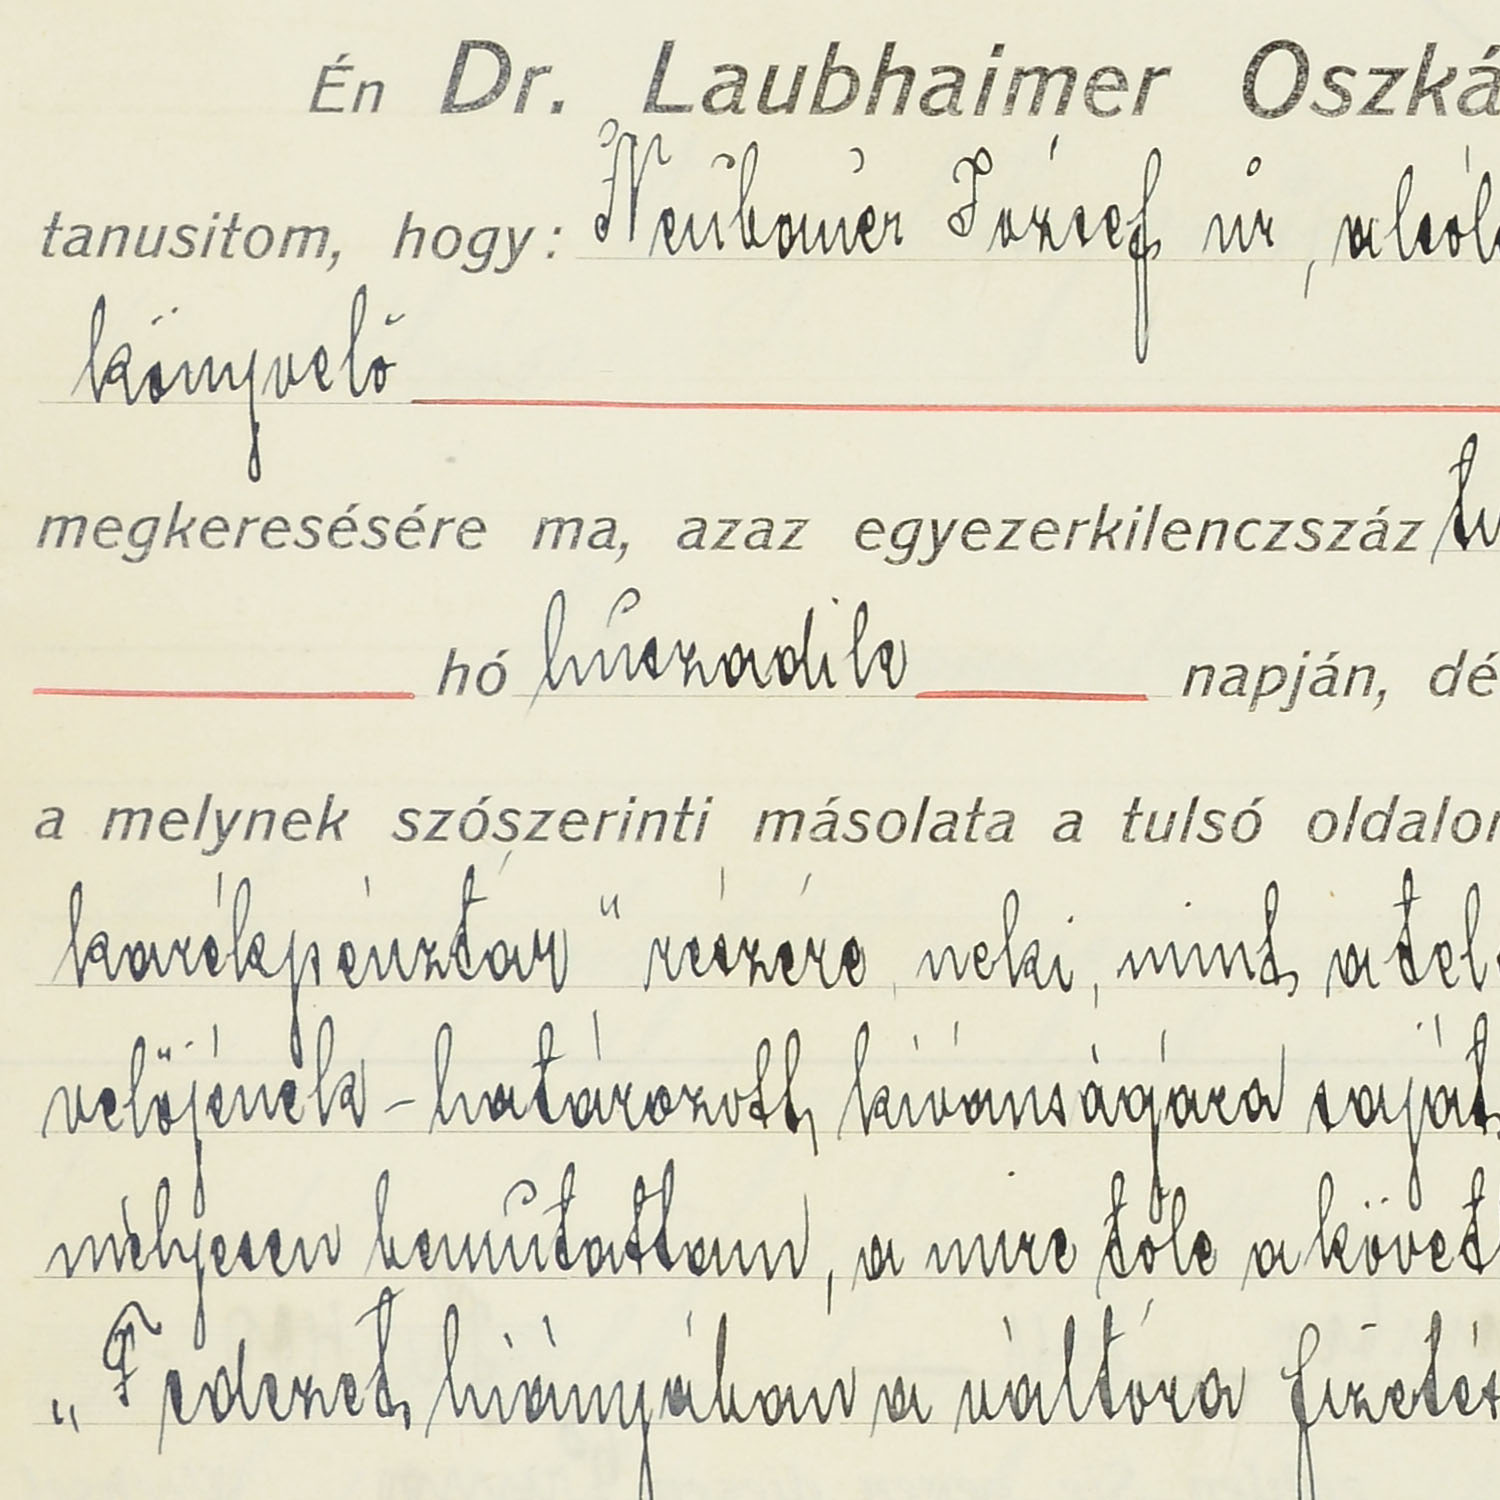 Én Dr. Laubhaimer Oszká
tanusitom, hogy: Neubauer József úr, alsól
könyvelő
megkeresésére ma, azaz egyezerkilenczszáz
hó huszadik napján, dé
a melynek szószerinti másolata a tulsó oldalon
karékpénztár" részére neki, mint a fel
velőjének - határozott kivánságára saját
mélyesen bemutattam, a mire tőle a követ
„Fedezet hiányában a váltóra fizetés